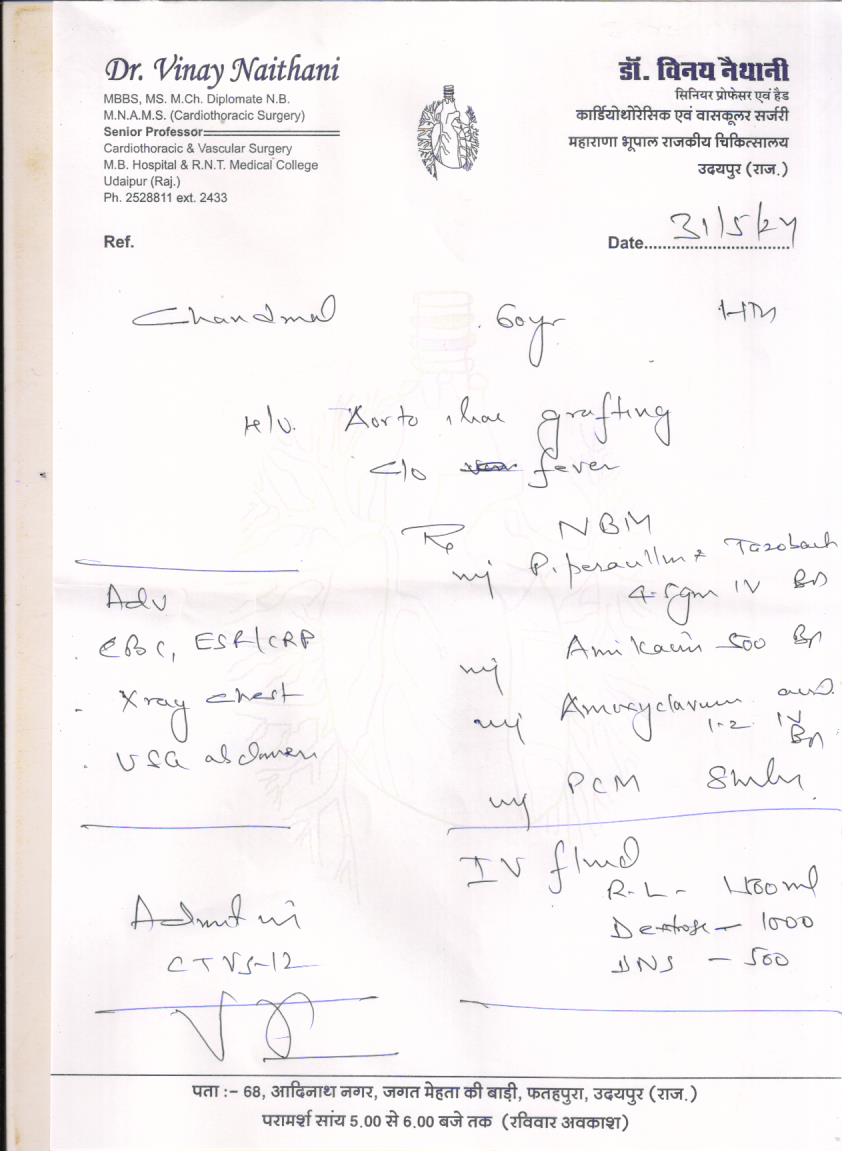 Dr. Vinay Naithani
MBBS, MS. M.Ch. Diplomate N.B.
M.N.A.M.S. (Cardiothoracic Surgery)
Senior Professor
Cardiothoracic & Vascular Surgery
M.B. Hospital & R.N.T. Medical College
Udaipur (Raj.)
Ph. 2528811 ext. 2433
डॉ. विनय नैथानी
सिनियर प्रोफेसर एवं हैड
कार्डियोथोरेसिक एवं वासकूलर सर्जरी
महाराणा भूपाल राजकीय चिकित्सालय
उदयपुर (राज.)
Ref.
Date 31/5/24
Chandmal 60yr
Aorto iliac grafting
c/o fever
Adv
CBC, ESR/CRP
Xray chest
USG abdomen
Admit in
CTVS-12
Rx NBM
inj Piperacillin + Tazobact
4.5gm IV BD
inj Amikacin 500 BD
inj Amoxyclavum
1.2 IV
BD
inj PCM
IV fluid
R.L-
Dextose - 1000
DNS - 500
पता :- 68, आदिनाथ नगर, जगत मेहता की बाड़ी, फतहपुरा, उदयपुर (राज.)
परामर्श सांय 5.00 से 6.00 बजे तक (रविवार अवकाश)